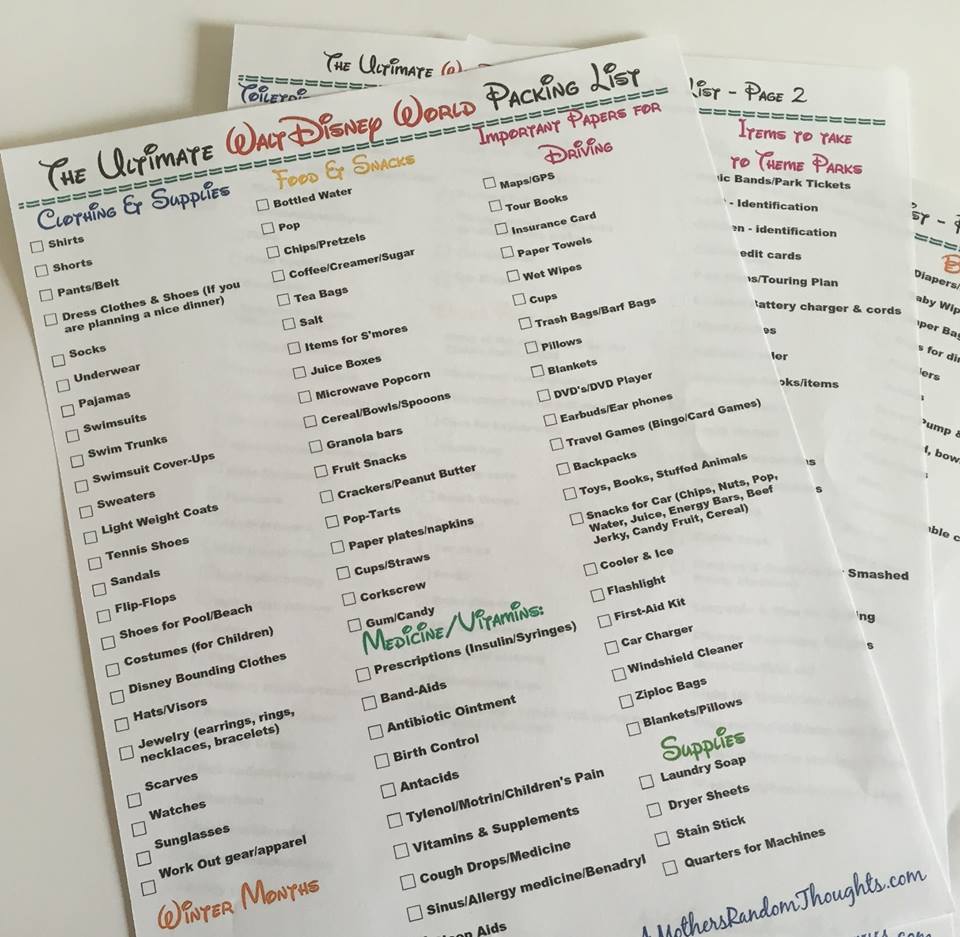 The Ultimate Walt Disney World Packing List
Clothing & Supplies
Shirts
Shorts
Pants/Belt
Dress Clothes & Shoes (If you
are planning a nice dinner)
Socks
Underwear
Pajamas
Swimsuits
Swim Trunks
Swimsuit Cover-Ups
Sweaters
Light Weight Coats
Tennis Shoes
Sandals
Flip-Flops
Shoes for Pool/Beach
Costumes (for Children)
Disney Bounding Clothes
Hats/Visors
Jewelry (earrings, rings,
necklaces, bracelets)
Scarves
Watches
Sunglasses
Work Out gear/apparel
Winter Months
Food & Snacks
Bottled Water
Pop
Chips/Pretzels
Coffee/Creamer/Sugar
Tea Bags
Salt
Items for S'mores
Juice Boxes
Microwave Popcorn
Cereal/Bowls/Spooons
Granola bars
Fruit Snacks
Crackers/Peanut Butter
Pop-Tarts
Paper plates/napkins
Cups/Straws
Corkscrew
Gum/Candy
Medicine/Vitamins:
Prescriptions (Insulin/Syringes)
Band-Aids
Antibiotic Ointment
Birth Control
Antacids
Tylenol/Motrin/Children's Pain
Vitamins & Supplements
Cough Drops/Medicine
Sinus/Allergy medicine/Benadryl
Aids
Important Papers for
Driving
Maps/GPS
Tour Books
Insurance Card
Paper Towels
Wet Wipes
Cups
Trash Bags/Barf Bags
Pillows
Blankets
DVD's/DVD Player
Earbuds/Ear phones
Travel Games (Bingo/Card Games)
Backpacks
Toys, Books, Stuffed Animals
Snacks for Car (Chips, Nuts, Pop,
Water, Juice, Energy Bars, Beef
Jerky, Candy Fruit, Cereal)
Cooler & Ice
Flashlight
First-Aid Kit
Car Charger
Windshield Cleaner
Ziploc Bags
Blankets/Pillows
Supplies
Laundry Soap
Dryer Sheets
Stain Stick
Quarters for Machines
AMothersRandomThoughts.com
The Ultimate
List - Page 2
Items to take
to Theme Parks
Bands/Park Tickets
- Identification
- identification
cards
/Touring Plan
battery charger & cords
/items
Smashed
Diapers/
.com